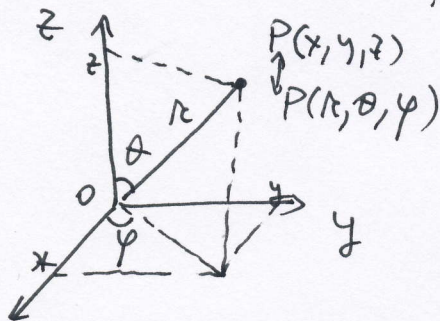 Z
z
P(x, y, z)
↕
P(r, θ, φ)
r
θ
O
y
y
φ
x